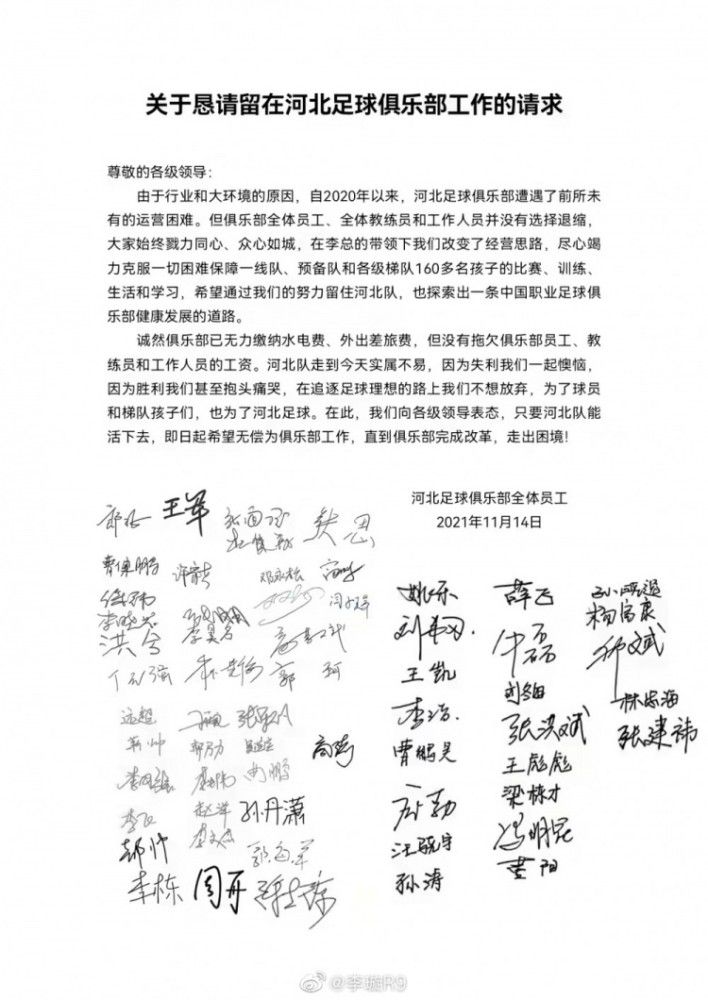 关于恳请留在河北足球俱乐部工作的请求
尊敬的各级领导：
由于行业和大环境的原因，自2020年以来，河北足球俱乐部遭遇了前所未
有的运营困难。但俱乐部全体员工、全体教练员和工作人员并没有选择退缩，
大家始终戮力同心、众心如城，在李总的带领下我们改变了经营思路，尽心竭
力克服一切困难保障一线队、预备队和各级梯队160多名孩子的比赛、训练、
生活和学习，希望通过我们的努力留住河北队，也探索出一条中国职业足球俱
乐部健康发展的道路。
诚然俱乐部已无力缴纳水电费、外出差旅费，但没有拖欠俱乐部员工、教
练员和工作人员的工资。河北队走到今天实属不易，因为失利我们一起懊恼，
因为胜利我们甚至抱头痛哭，在追逐足球理想的路上我们不想放弃，为了球员
和梯队孩子们，也为了河北足球。在此，我们向各级领导表态，只要河北队能
活下去，即日起希望无偿为俱乐部工作，直到俱乐部完成改革，走出困境！
河北足球俱乐部全体员工
2021年11月14日
王军
曹保鹏
洪兮
郭 珂
姚乐
薛飞
杨富康
王凯
李浩
曹鹏昊
张洪斌
林忠海
张建祎
王彪彪
梁栋才
汪晓宇
冯明昆
孙涛
黄阳
高嵩
赵洋
孙丹潇
郝帅
郭海军
李栋
周开
@李璇R9